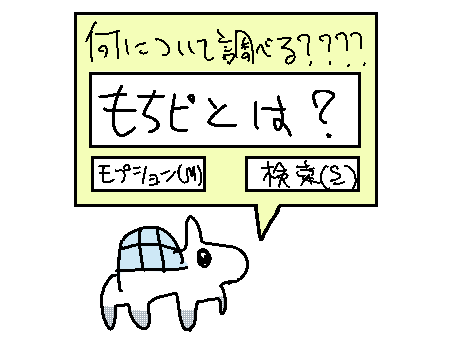 何について調べる????
もちピとは?
モプション(M)
検索(S)